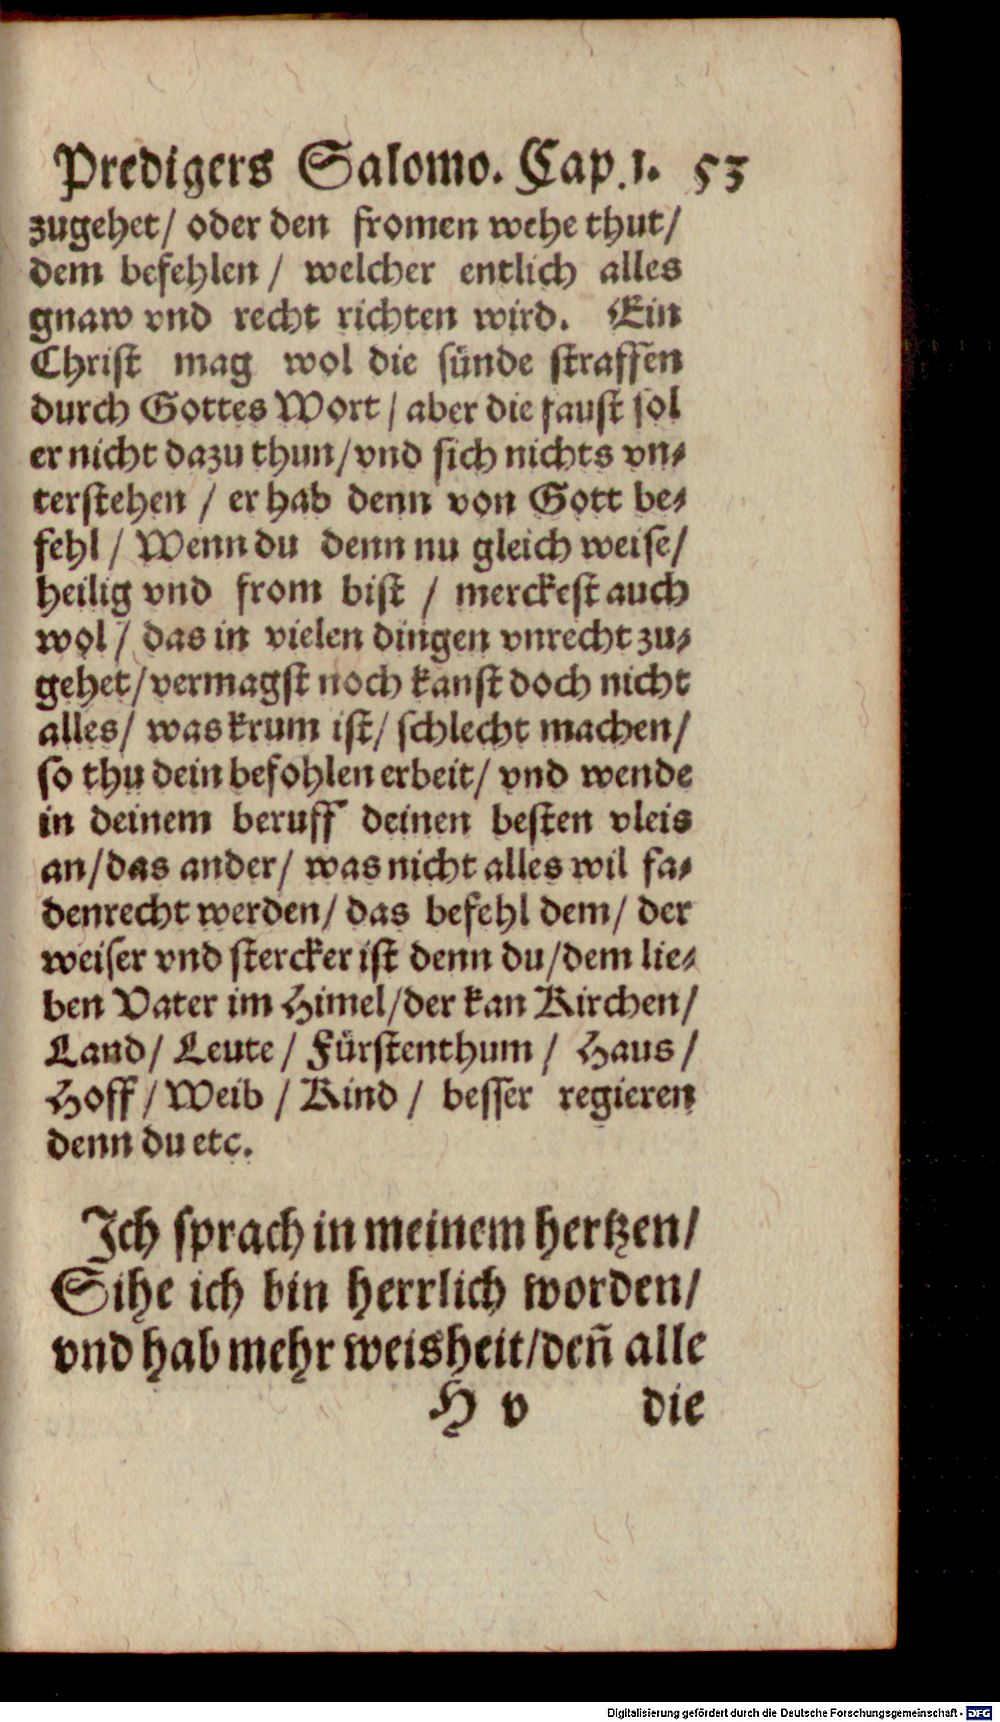 Predigers Salomo. Cap. 1. 53
zugehet/ oder den fromen wehe thut/
dem befehlen / welcher entlich alles
gnaw vnd recht richten wird. Ein
Christ mag wol die sünde straffen
durch Gottes Wort / aber die faust sol
er nicht dazu thun/vnd sich nichts vn⸗
terstehen / er hab denn von Gott be⸗
fehl / Wenn du denn nu gleich weise/
heilig vnd from bist / merckest auch
wol / das in vielen dingen vnrecht zu⸗
gehet/vermagst noch kanst doch nicht
alles/ was krum ist/ schlecht machen/
so thu dein befohlen erbeit/ vnd wende
in deinem beruff deinen besten vleis
an/das ander/ was nicht alles wil fa⸗
denrecht werden/ das befehl dem/ der
weiser vnd stercker ist denn du/dem lie⸗
ben Vater im Himel/der kan Kirchen/
Land/ Leute / Fürstenthum / Haus /
Hoff / Weib / Kind / besser regieren
denn du etc.
Ich sprach in meinem hertzen/
Sihe ich bin herrlich worden/
vnd hab mehr weisheit/deñ alle
H v die
Digitalisierung gefördert durch die Deutsche Forschungsgemeinschaft - DFG